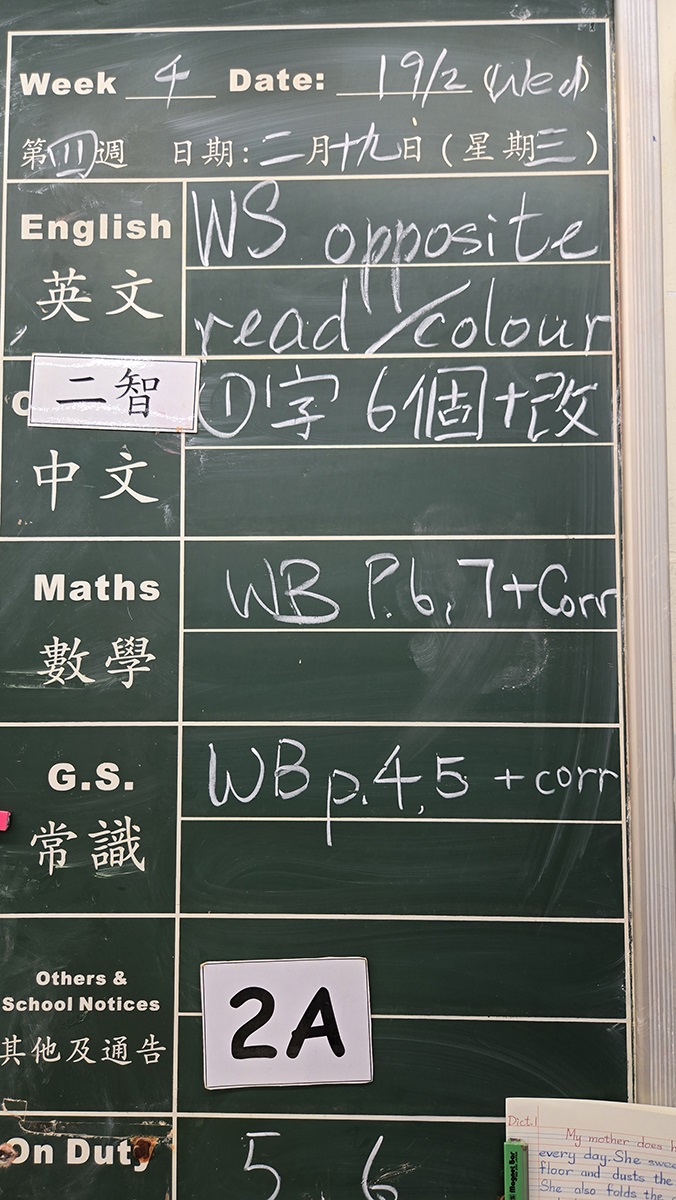 Week 4 Date: 19/2 (Wed)
第四週 日期:二月十九日(星期三)
English WS opposite
英文 read/colour
二智 ①字 6個+改
中文
Maths WB P.6, 7+Corr
數學
G.S. WB p.4, 5 +corr
常識
Others &
School Notices
其他及通告
2A
On Duty 5, 6
Dictat
My mother does h
every day. She swee
floor and dusts the
She also folds the
Magnet Bar